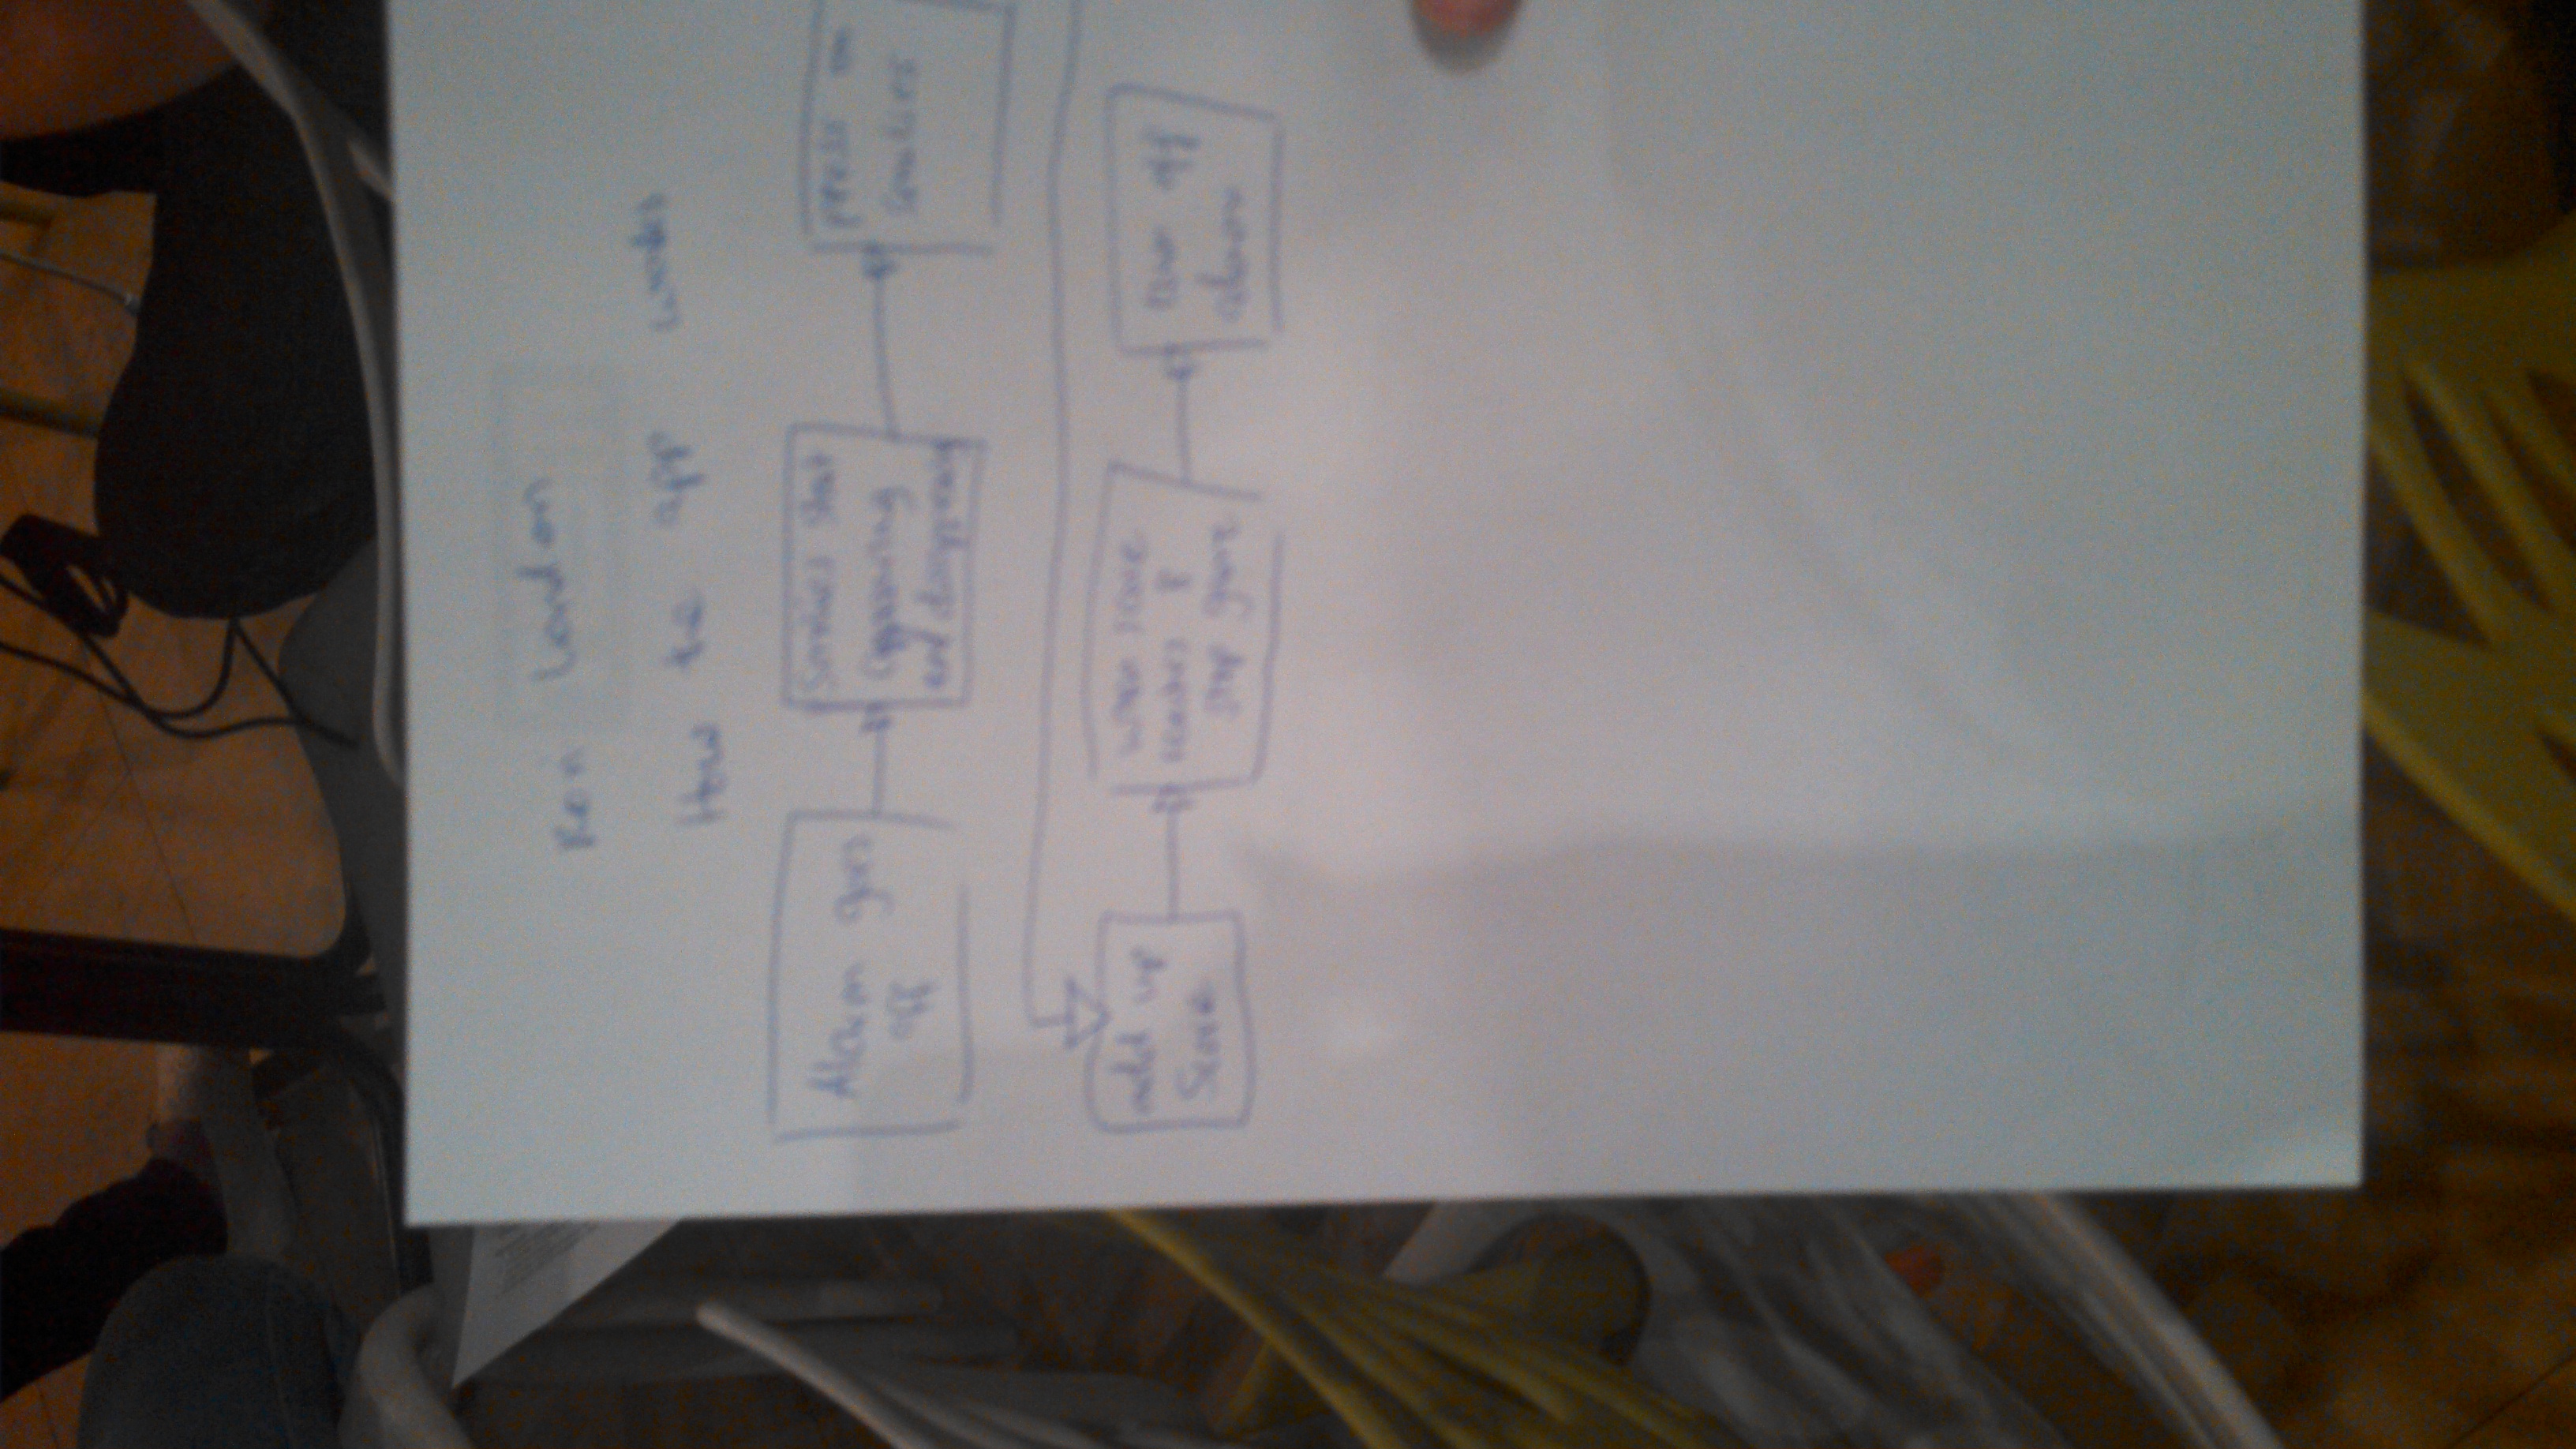 London
How the app works
Alarm goes
off
Smilies start
appearing
and
press on
smilies
add up
Score
when score
reaches
stop game
turn off
alarm